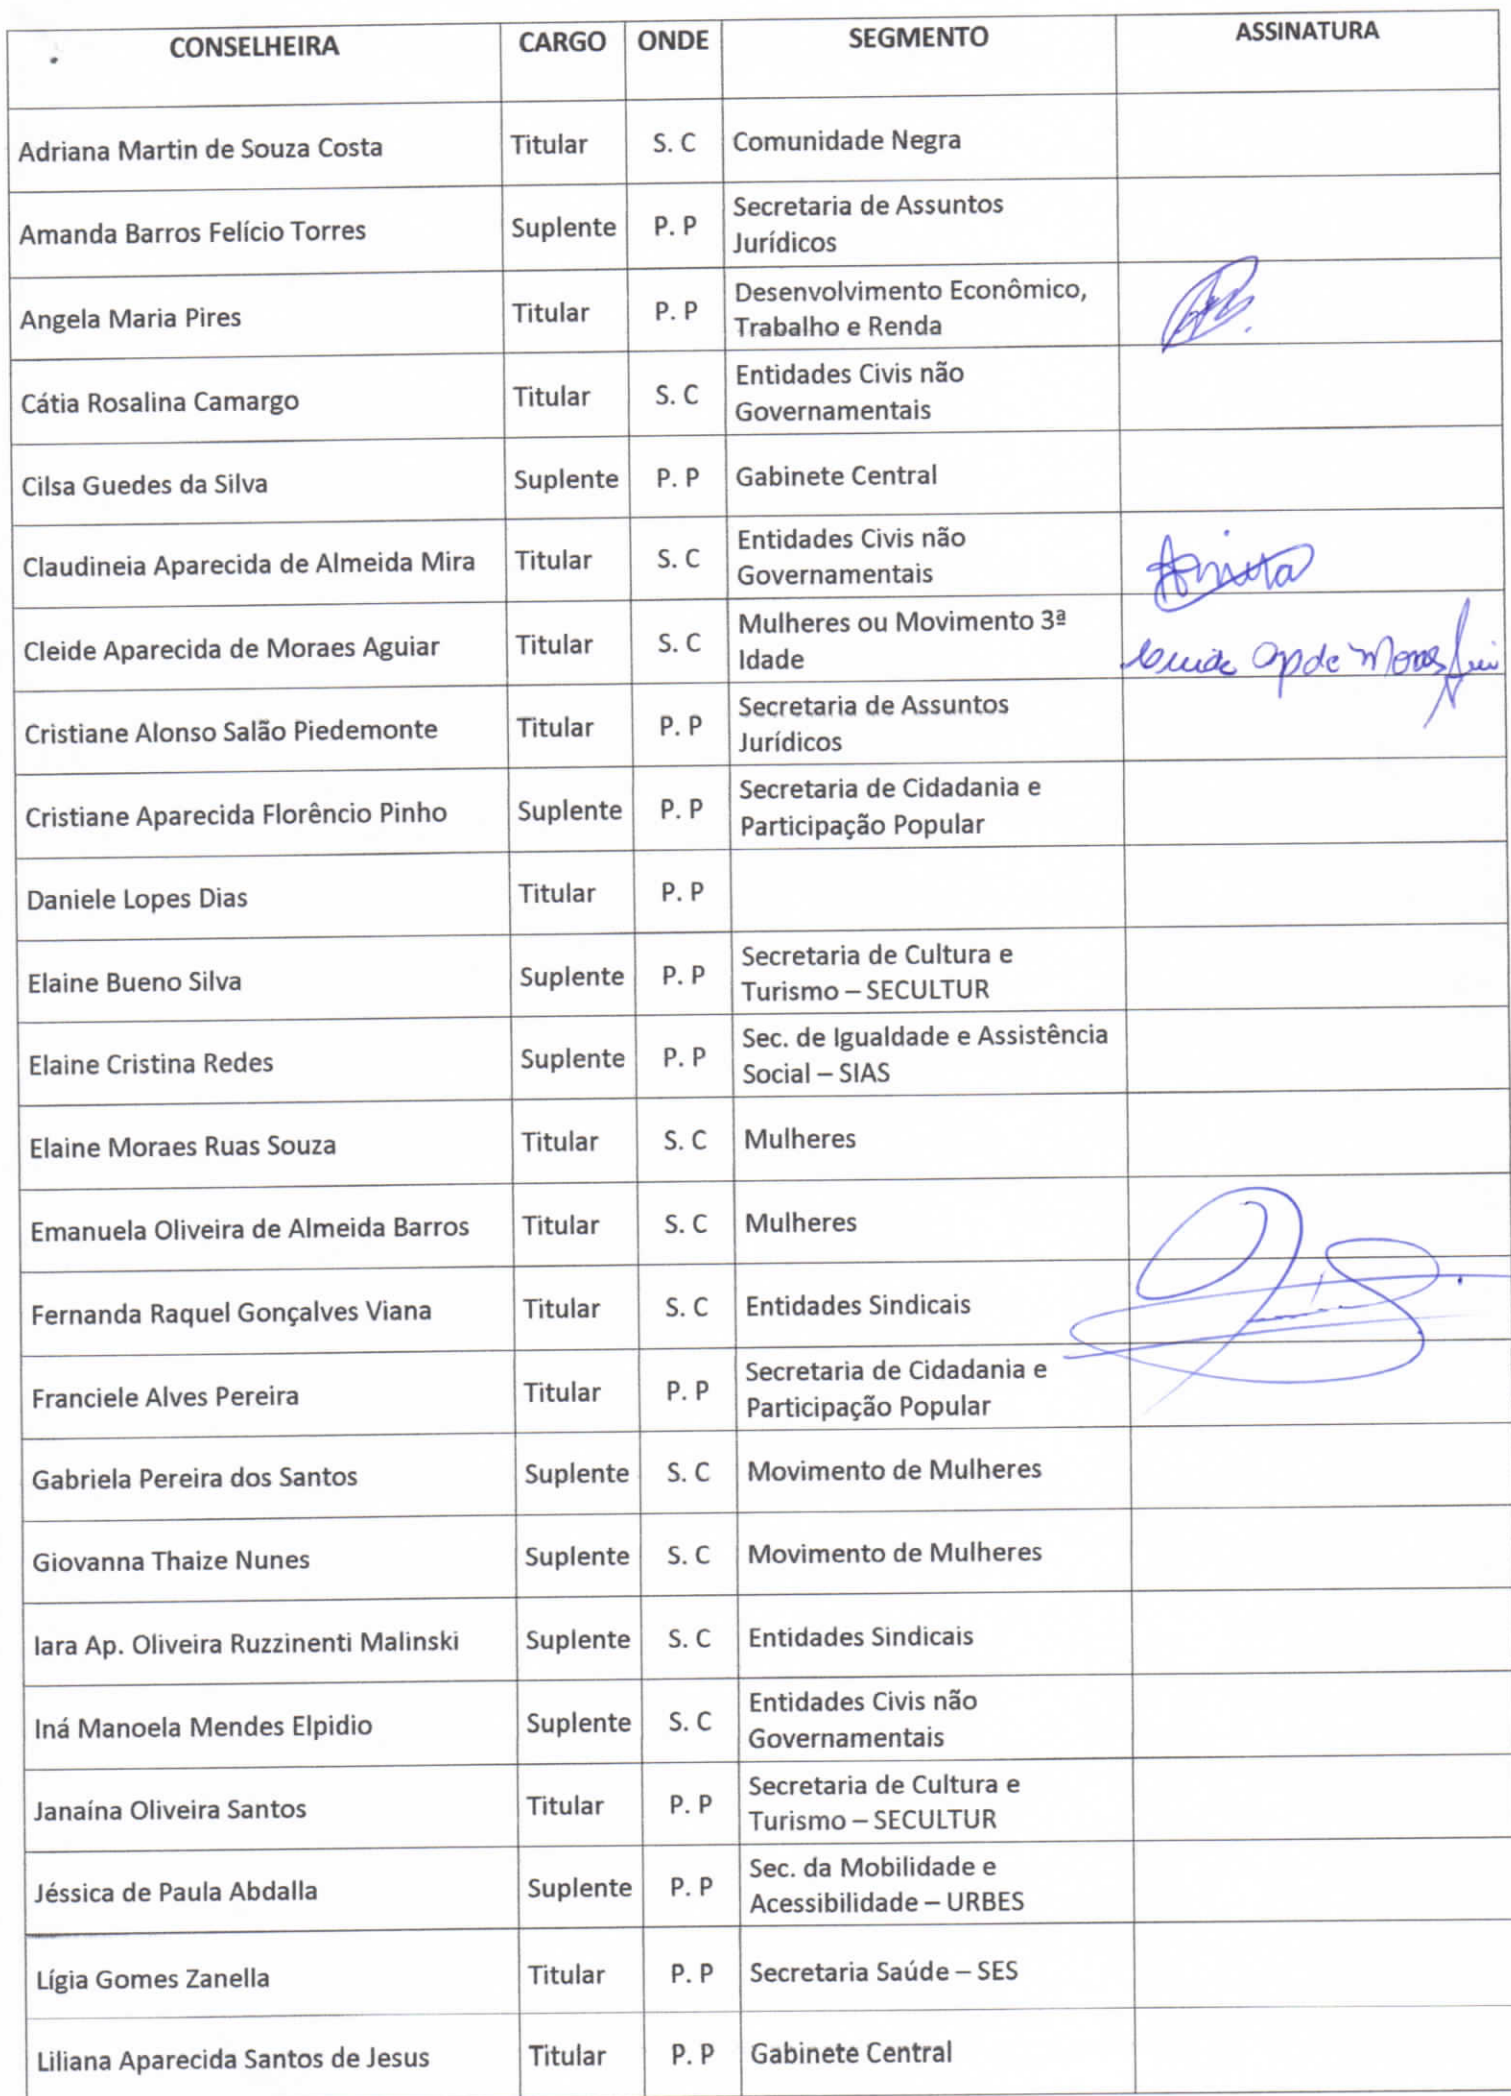 CONSELHEIRA CARGO ONDE SEGMENTO ASSINATURA
Adriana Martin de Souza Costa Titular S. C Comunidade Negra
Amanda Barros Felício Torres Suplente P. P Secretaria de Assuntos
Jurídicos
Angela Maria Pires Titular P. P Desenvolvimento Econômico,
Trabalho e Renda
Cátia Rosalina Camargo Titular S. C Entidades Civis não
Governamentais
Cilsa Guedes da Silva Suplente P. P Gabinete Central
Claudineia Aparecida de Almeida Mira Titular S. C Entidades Civis não
Governamentais
Cleide Aparecida de Moraes Aguiar Titular S. C Mulheres ou Movimento 3ª
Idade
Cristiane Alonso Salão Piedemonte Titular P. P Secretaria de Assuntos
Jurídicos
Cristiane Aparecida Florêncio Pinho Suplente P. P Secretaria de Cidadania e
Participação Popular
Daniele Lopes Dias Titular P. P
Elaine Bueno Silva Suplente P. P Secretaria de Cultura e
Turismo – SECULTUR
Elaine Cristina Redes Suplente P. P Sec. de Igualdade e Assistência
Social – SIAS
Elaine Moraes Ruas Souza Titular S. C Mulheres
Emanuela Oliveira de Almeida Barros Titular S. C Mulheres
Fernanda Raquel Gonçalves Viana Titular S. C Entidades Sindicais
Franciele Alves Pereira Titular P. P Secretaria de Cidadania e
Participação Popular
Gabriela Pereira dos Santos Suplente S. C Movimento de Mulheres
Giovanna Thaize Nunes Suplente S. C Movimento de Mulheres
Iara Ap. Oliveira Ruzzinenti Malinski Suplente S. C Entidades Sindicais
Iná Manoela Mendes Elpidio Suplente S. C Entidades Civis não
Governamentais
Janaína Oliveira Santos Titular P. P Secretaria de Cultura e
Turismo – SECULTUR
Jéssica de Paula Abdalla Suplente P. P Sec. da Mobilidade e
Acessibilidade – URBES
Lígia Gomes Zanella Titular P. P Secretaria Saúde – SES
Liliana Aparecida Santos de Jesus Titular P. P Gabinete Central